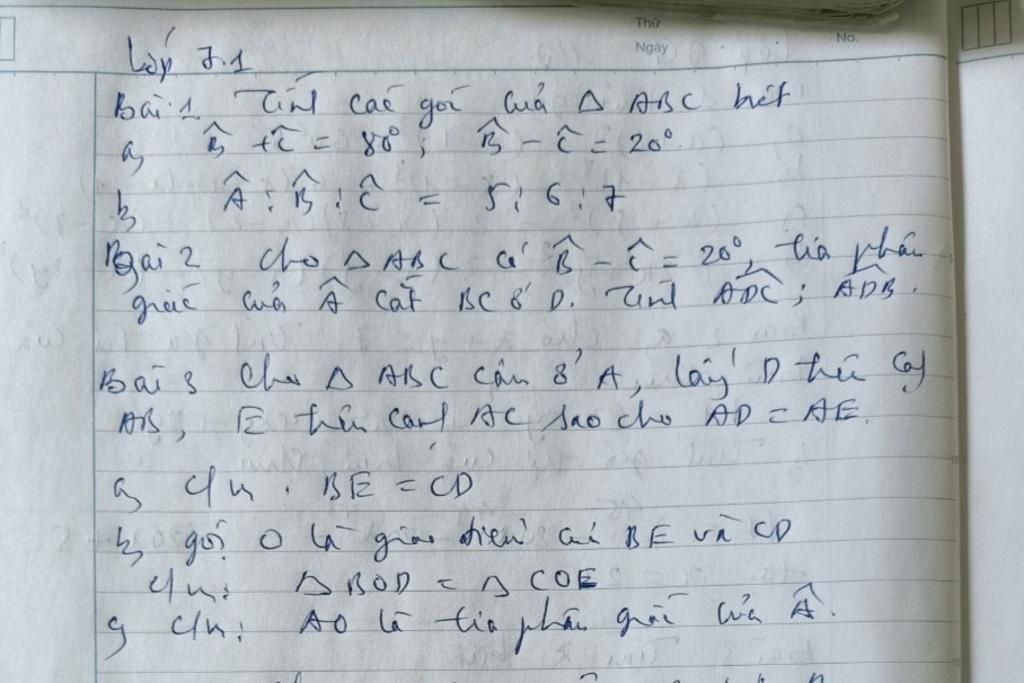 Thứ
Ngày
No.
Lớp 7.1
Bài 1 Tính các góc của Δ ABC biết
a, B̂ + Ĉ = 80°; B̂ - Ĉ = 20°.
b, Â : B̂ : Ĉ = 5 : 6 : 7
Bài 2 Cho Δ ABC có B̂ - Ĉ = 20°, tia phân
giác của Â cắt BC ở D. Tính ADC; ADB.
Bài 3 Cho Δ ABC cân ở A, lấy D trên cạ
AB, E trên cạnh AC sao cho AD = AE.
a, c/m. BE = CD
b, gọi O là giao điểm của BE và CD
c/m: Δ BOD = Δ COE
c, c/m: AO là tia phân giác của Â.